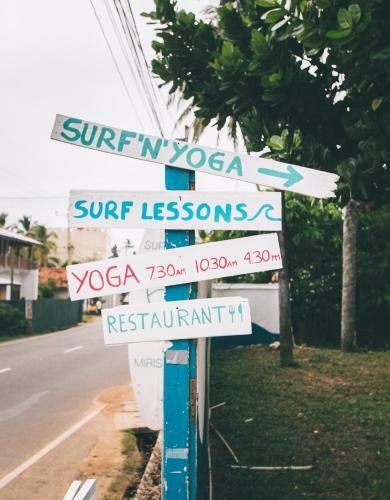 SURF'N'YOGA
SURF LESSONS
YOGA 7.30AM 10.30AM 4.30PM
RESTAURANT
SUR
MIRIS